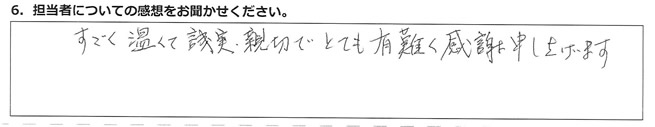 6. 担当者についての感想をお聞かせください。
すごく温くて誠実、親切でとても有難く感謝申し上げます